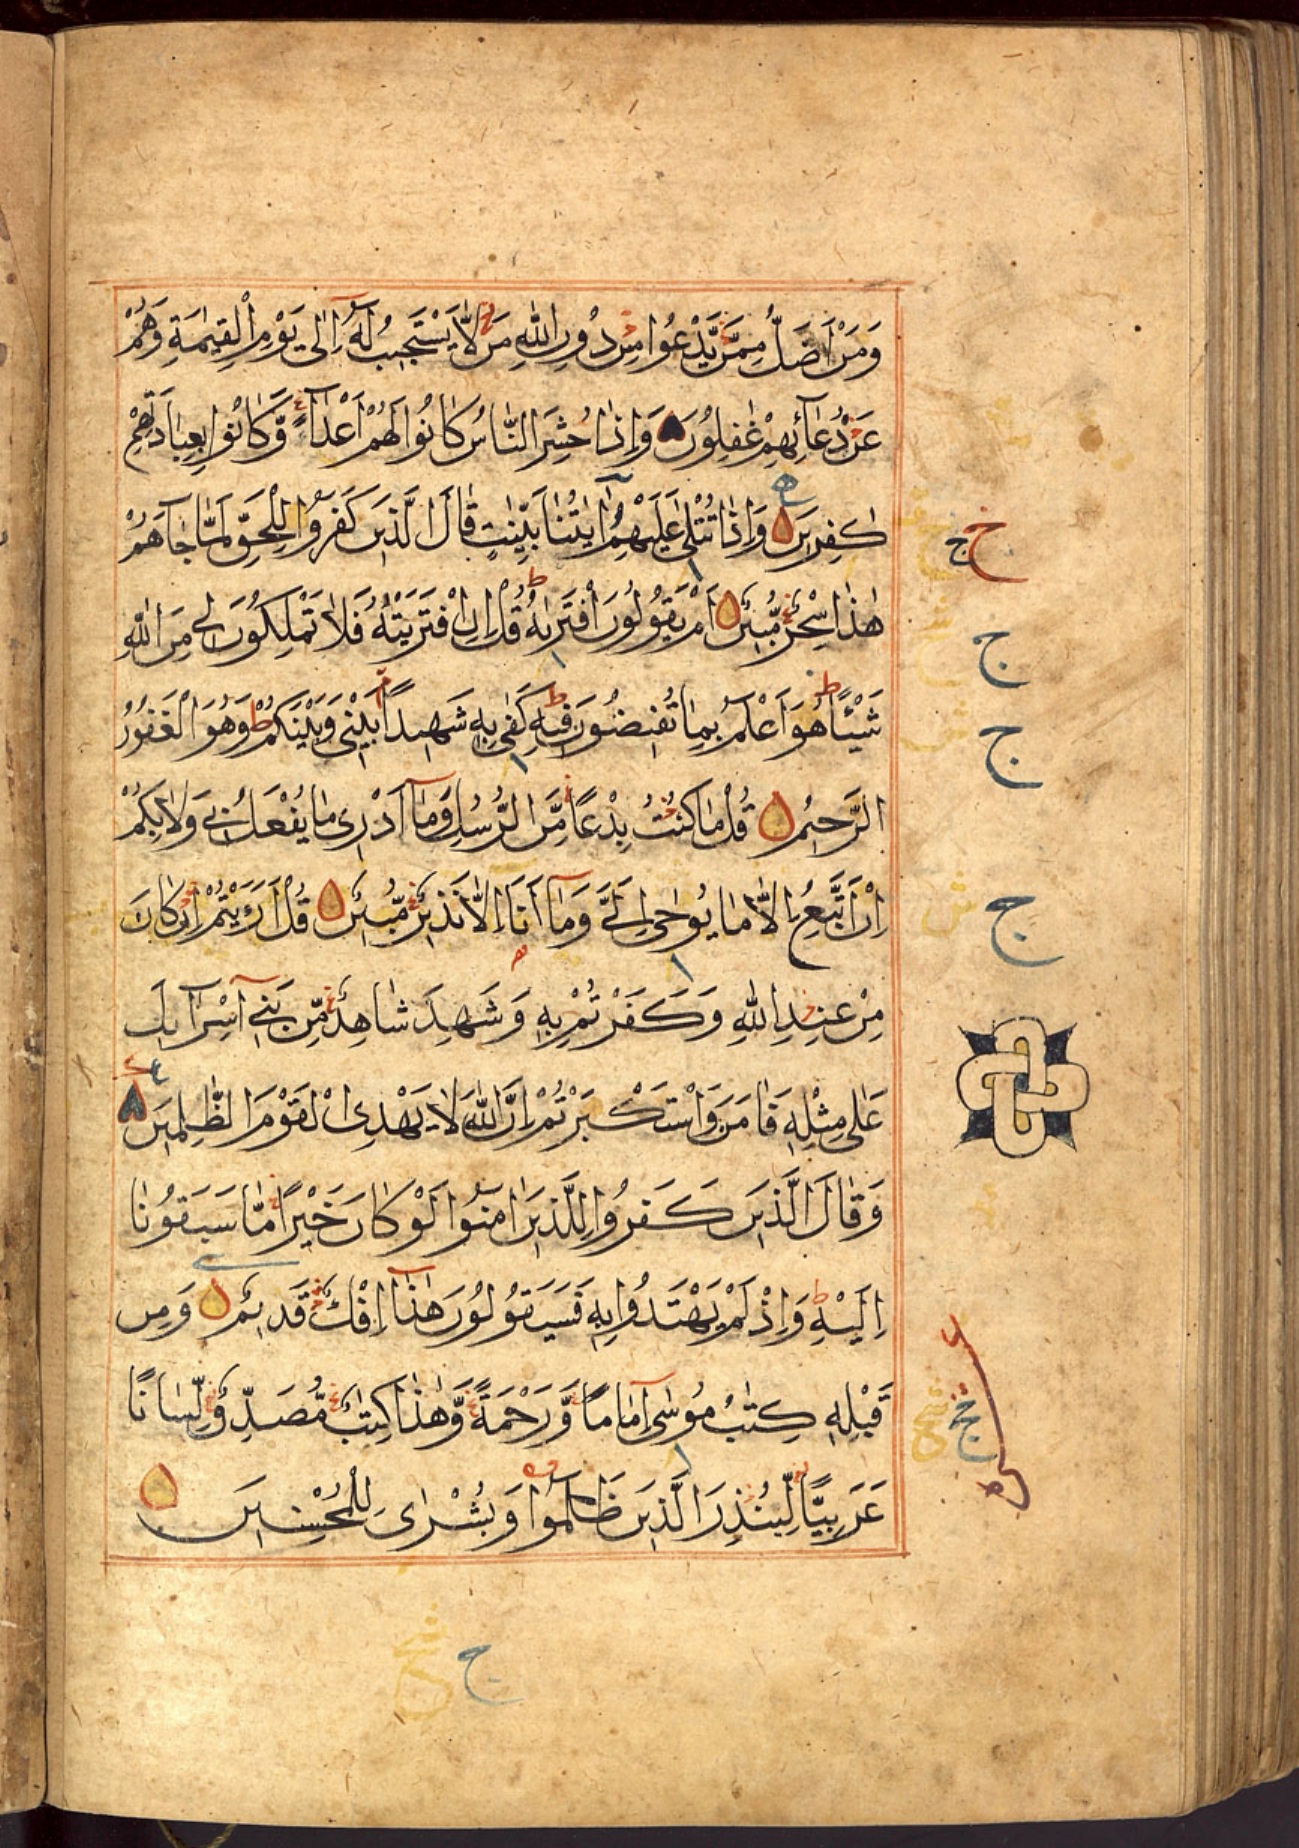 وَمَنْ اَضَلُّ مِمَّنْ يَّدْعُوا مِنْ دُوْنِ اللّٰهِ مَنْ لَّا يَسْتَجِيْبُ لَهٗۤ اِلٰى يَوْمِ الْقِيٰمَةِ وَهُمْ
عَنْ دُعَآئِهِمْ غٰفِلُوْنَ وَاِذَا حُشِرَ النَّاسُ كَانُوْا لَهُمْ اَعْدَآءً وَّكَانُوْا بِعِبَادَتِهِمْ
كٰفِرِيْنَ وَاِذَا تُتْلٰى عَلَيْهِمْ اٰيٰتُنَا بَيِّنٰتٍ قَالَ الَّذِيْنَ كَفَرُوْا لِلْحَقِّ لَمَّا جَآءَهُمْ
هٰذَا سِحْرٌ مُّبِيْنٌ اَمْ يَقُوْلُوْنَ افْتَرٰىهُ قُلْ اِنِ افْتَرَيْتُهٗ فَلَا تَمْلِكُوْنَ لِيْ مِنَ اللّٰهِ
شَيْئًا هُوَ اَعْلَمُ بِمَا تُفِيْضُوْنَ فِيْهِ كَفٰى بِهٖ شَهِيْدًا بَيْنِيْ وَبَيْنَكُمْ وَهُوَ الْغَفُوْرُ
الرَّحِيْمُ قُلْ مَا كُنْتُ بِدْعًا مِّنَ الرُّسُلِ وَمَاۤ اَدْرِىْ مَا يُفْعَلُ بِيْ وَلَا بِكُمْ
اِنْ اَتَّبِعُ اِلَّا مَا يُوْحٰى اِلَيَّ وَمَاۤ اَنَا اِلَّا نَذِيْرٌ مُّبِيْنٌ قُلْ اَرَءَيْتُمْ اِنْ كَانَ
مِنْ عِنْدِ اللّٰهِ وَكَفَرْتُمْ بِهٖ وَشَهِدَ شَاهِدٌ مِّنْ بَنِيْۤ اِسْرَآئِيْلَ
عَلٰى مِثْلِهٖ فَاٰمَنَ وَاسْتَكْبَرْتُمْ اِنَّ اللّٰهَ لَا يَهْدِى الْقَوْمَ الظّٰلِمِيْنَ
وَقَالَ الَّذِيْنَ كَفَرُوْا لِلَّذِيْنَ اٰمَنُوْا لَوْ كَانَ خَيْرًا مَّا سَبَقُوْنَا
اِلَيْهِ وَاِذْ لَمْ يَهْتَدُوْا بِهٖ فَسَيَقُوْلُوْنَ هٰذَاۤ اِفْكٌ قَدِيْمٌ وَمِنْ
قَبْلِهٖ كِتٰبُ مُوْسٰىۤ اِمَامًا وَّرَحْمَةً وَّهٰذَا كِتٰبٌ مُّصَدِّقٌ لِّسَانًا
عَرَبِيًّا لِّيُنْذِرَ الَّذِيْنَ ظَلَمُوْا وَبُشْرٰى لِلْمُحْسِنِيْنَ
خ ج
ج
ج
ج
ج
ج